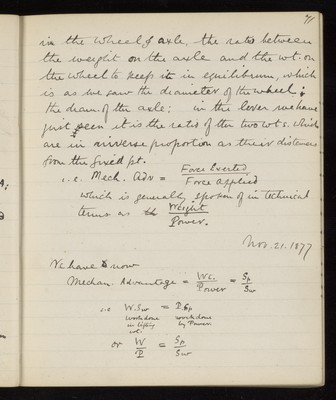 71
in the wheel & axle, the ratio between
the weight on the axle and the wt. on
the wheel to keep it in equilibrium, which
is as we saw the diameter of the wheel :
the diam. of the axle; in the lever we have
just seen it is the ratio of the two wts. which
are in inverse proportion as their distances
from the fixed pt.
i.e. Mech. Adv = Force Exerted / Force Applied
which is generally spoken of in technical
terms as Weight / Power.
Nov. 21. 1877
We have now
Mechan. Advantage = Wt. / Power = Sp / Sw
i.e W. Sw = P. Sp
work done work done
in lifting by Power
wt.
or W / P = Sp / Sw